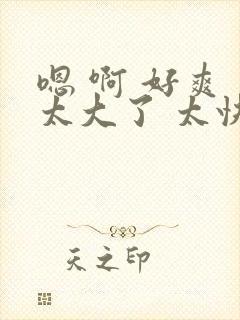 嗯 啊 好爽
太大了 太快
天之印